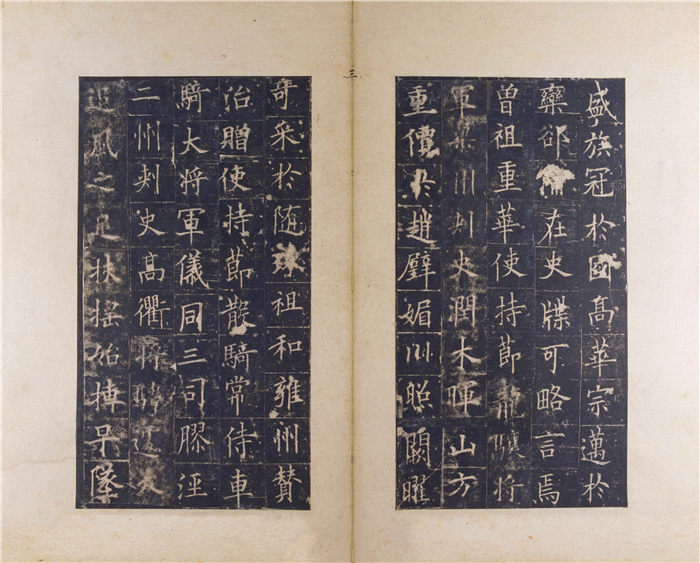 盛族冠於國高華宗邁於
欒郤在史牒可略言焉
曾祖重華使持節龍驤將
軍梁州刾史潤木暉山方
重價於趙璧媚川照闕曜
奇采於随珠祖和雍州賛
治贈使持節散騎常侍車
騎大将軍儀同三司膠涇
二州刾史高衢将騁遽夭
追風之足扶搖始摶早墜
三